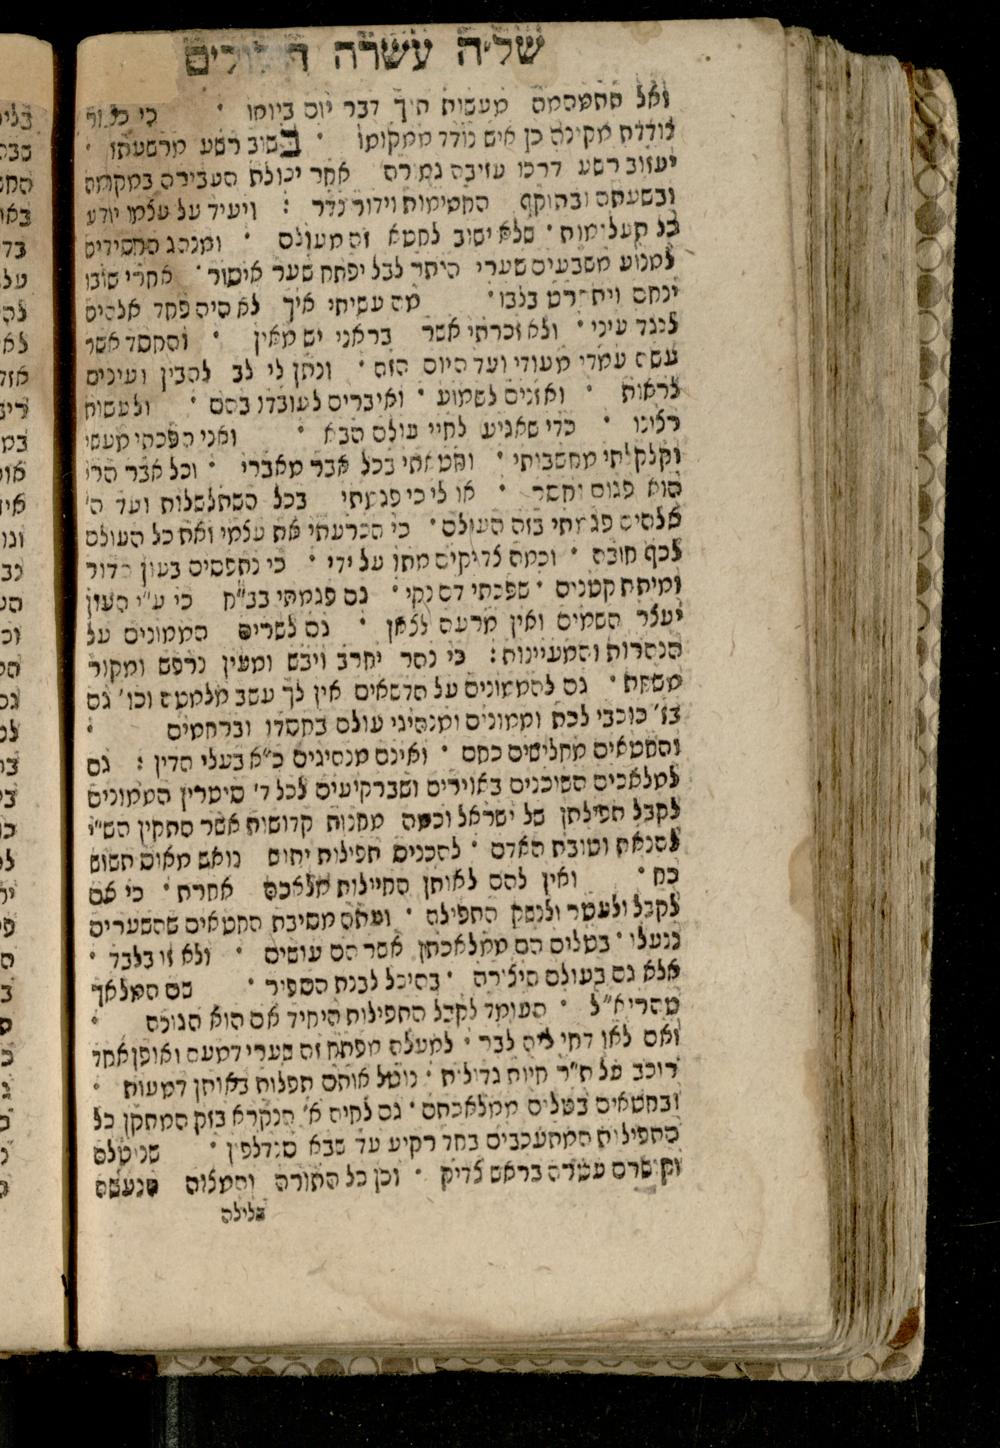 של״ה עשרה הלולים
ואל תתמהמה מעשות תיך דבר יום ביומו · כי כצפור
נודדת מקינה כן איש נודד ממקומו · בשוב רשע מרשעתו ·
יעזוב רשע דרכו עזיבה גמורה אחר יכולת העבירה במקומה
ובשעתה ובתוקף התמימות וידור נדר : ויעיד על עצמו יודע
כל תעלימות · שלא ישוב לחטא זה מעולם · ומנהג החסידים
למנוע משבעים שערי היתר לבל יפתח שער איסור · אחרי שובו
ינחם ויתחרט בלבו · מה עשיתי איך לא היה פחד אלהים
לנגד עיני · ולא זכרתי אשר בראני יש מאין · והחסד אשר
עשה עמדי מעודי ועד היום הזה · ונתן לי לב להבין ועינים
לראות · ואזנים לשמוע · ואיברים לעובדו בהם · ולעשות
רצונו · כדי שאגיע לחיי עולם הבא · ואני הפכתי מעשי
וקלקלתי מחשבותי · וחטאתי בכל אבר מאברי · וכל אבר הרי
הוא פגום וחסר · או לי כי פגמתי בכל השתלשלות ועד ה'
אלהים פגמתי בזה העולם · כי הכרעתי את עצמי ואת כל העולם
לכף חובה · וכמה צדיקים מתו על ידי · כי נתפסים בעון הדור
ומיתת קטנים · שפכתי דם נקי · גם פגמתי בב״ח כי ע״י העון
יעצר השמים ואין מרעה לצאן · גם לשרים הממונים על
הנהרות והמעיינות : כי נהר יחרב ויבש ומעין נרפש ומקור
משחת · גם לחממונים על הדשאים אין לך עשב מלמטה וכו' גם
בז' כוכבי לכת וממונים ומנהיגי עולם בחסדו וברחמים ·
והחטאים מחלישים כחם · ואינם מנהיגים כ״א בעלי הדין : גם
למלאכים השוכנים באוירים ושברקיעים לכל ד' סיטרין הממונים
לקבל תפילתן של ישראל וכמה מחנות קדושות אשר התקין הש״י
להנאת וטובת האדם · להכנים תפילות יחום נואש מאום חשוש
כח · ואין להם לאותן החיילות מלאכה אחרת · כי אם
לקבל ולעטר ולנשק התפילה · ועתה מסיבת החטאים שהשערים
ננעלו · בטלים הם ממלאכתן אשר הם עושים · ולא זו בלבד ·
אלא גם בעולם היצירה · בהיכל לבנת הספיר · שם המלאך
טהריא״ל · העומד לקבל התפילות היחיד אם הוא הגונה ·
ואם לאו דחי ליה לבר · למעלה מפתח זה שערי דמעה ואופן אחד
רוכב על ת״ר חיות גדולות · נוטל אותם תפלות באותן דמעות ·
ובחטאים בטלים ממלאכתם · גם לחיה א' הנקרא בזק המתקן כל
התפילות המתעכבים בחד רקיע עד שבא סנדלפון · שניטלם
וקושרם עטרה בראש צדיק · וכן כל התורה והמצות שנעשה
בלילה